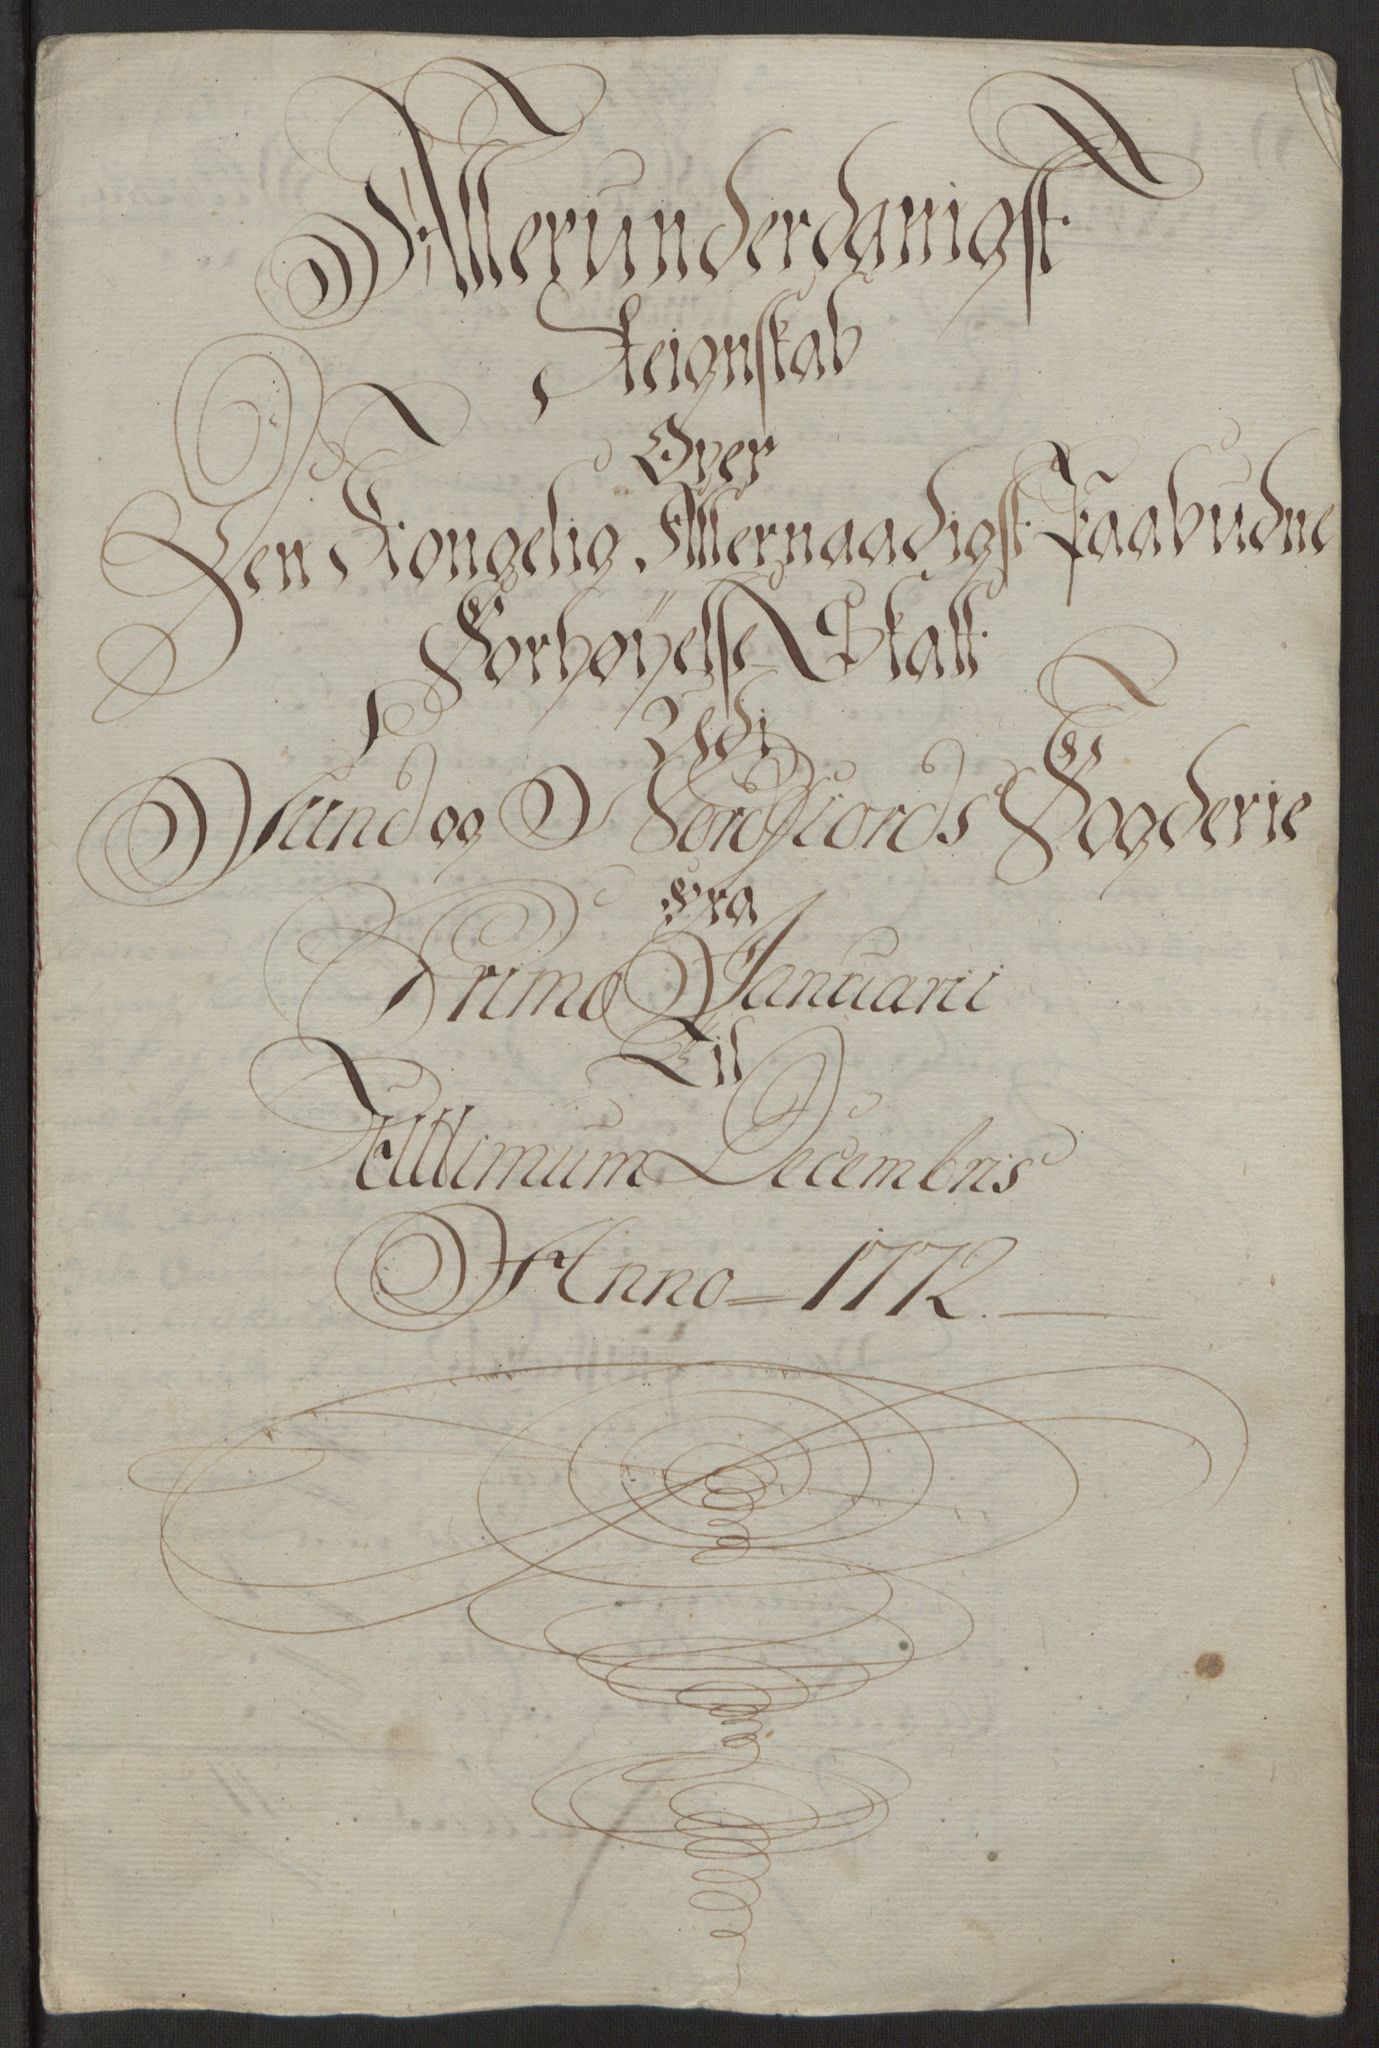 Allerunderdanigst
Reignskab
Over
Den Kongelig Allernaadigst Paabudne
Forhøyelse Skatt
Udi
Sund og Nordfiords Fogderie
Fra
Primo Januarii
Til
Ultimum Decembris
Anno = 1772.